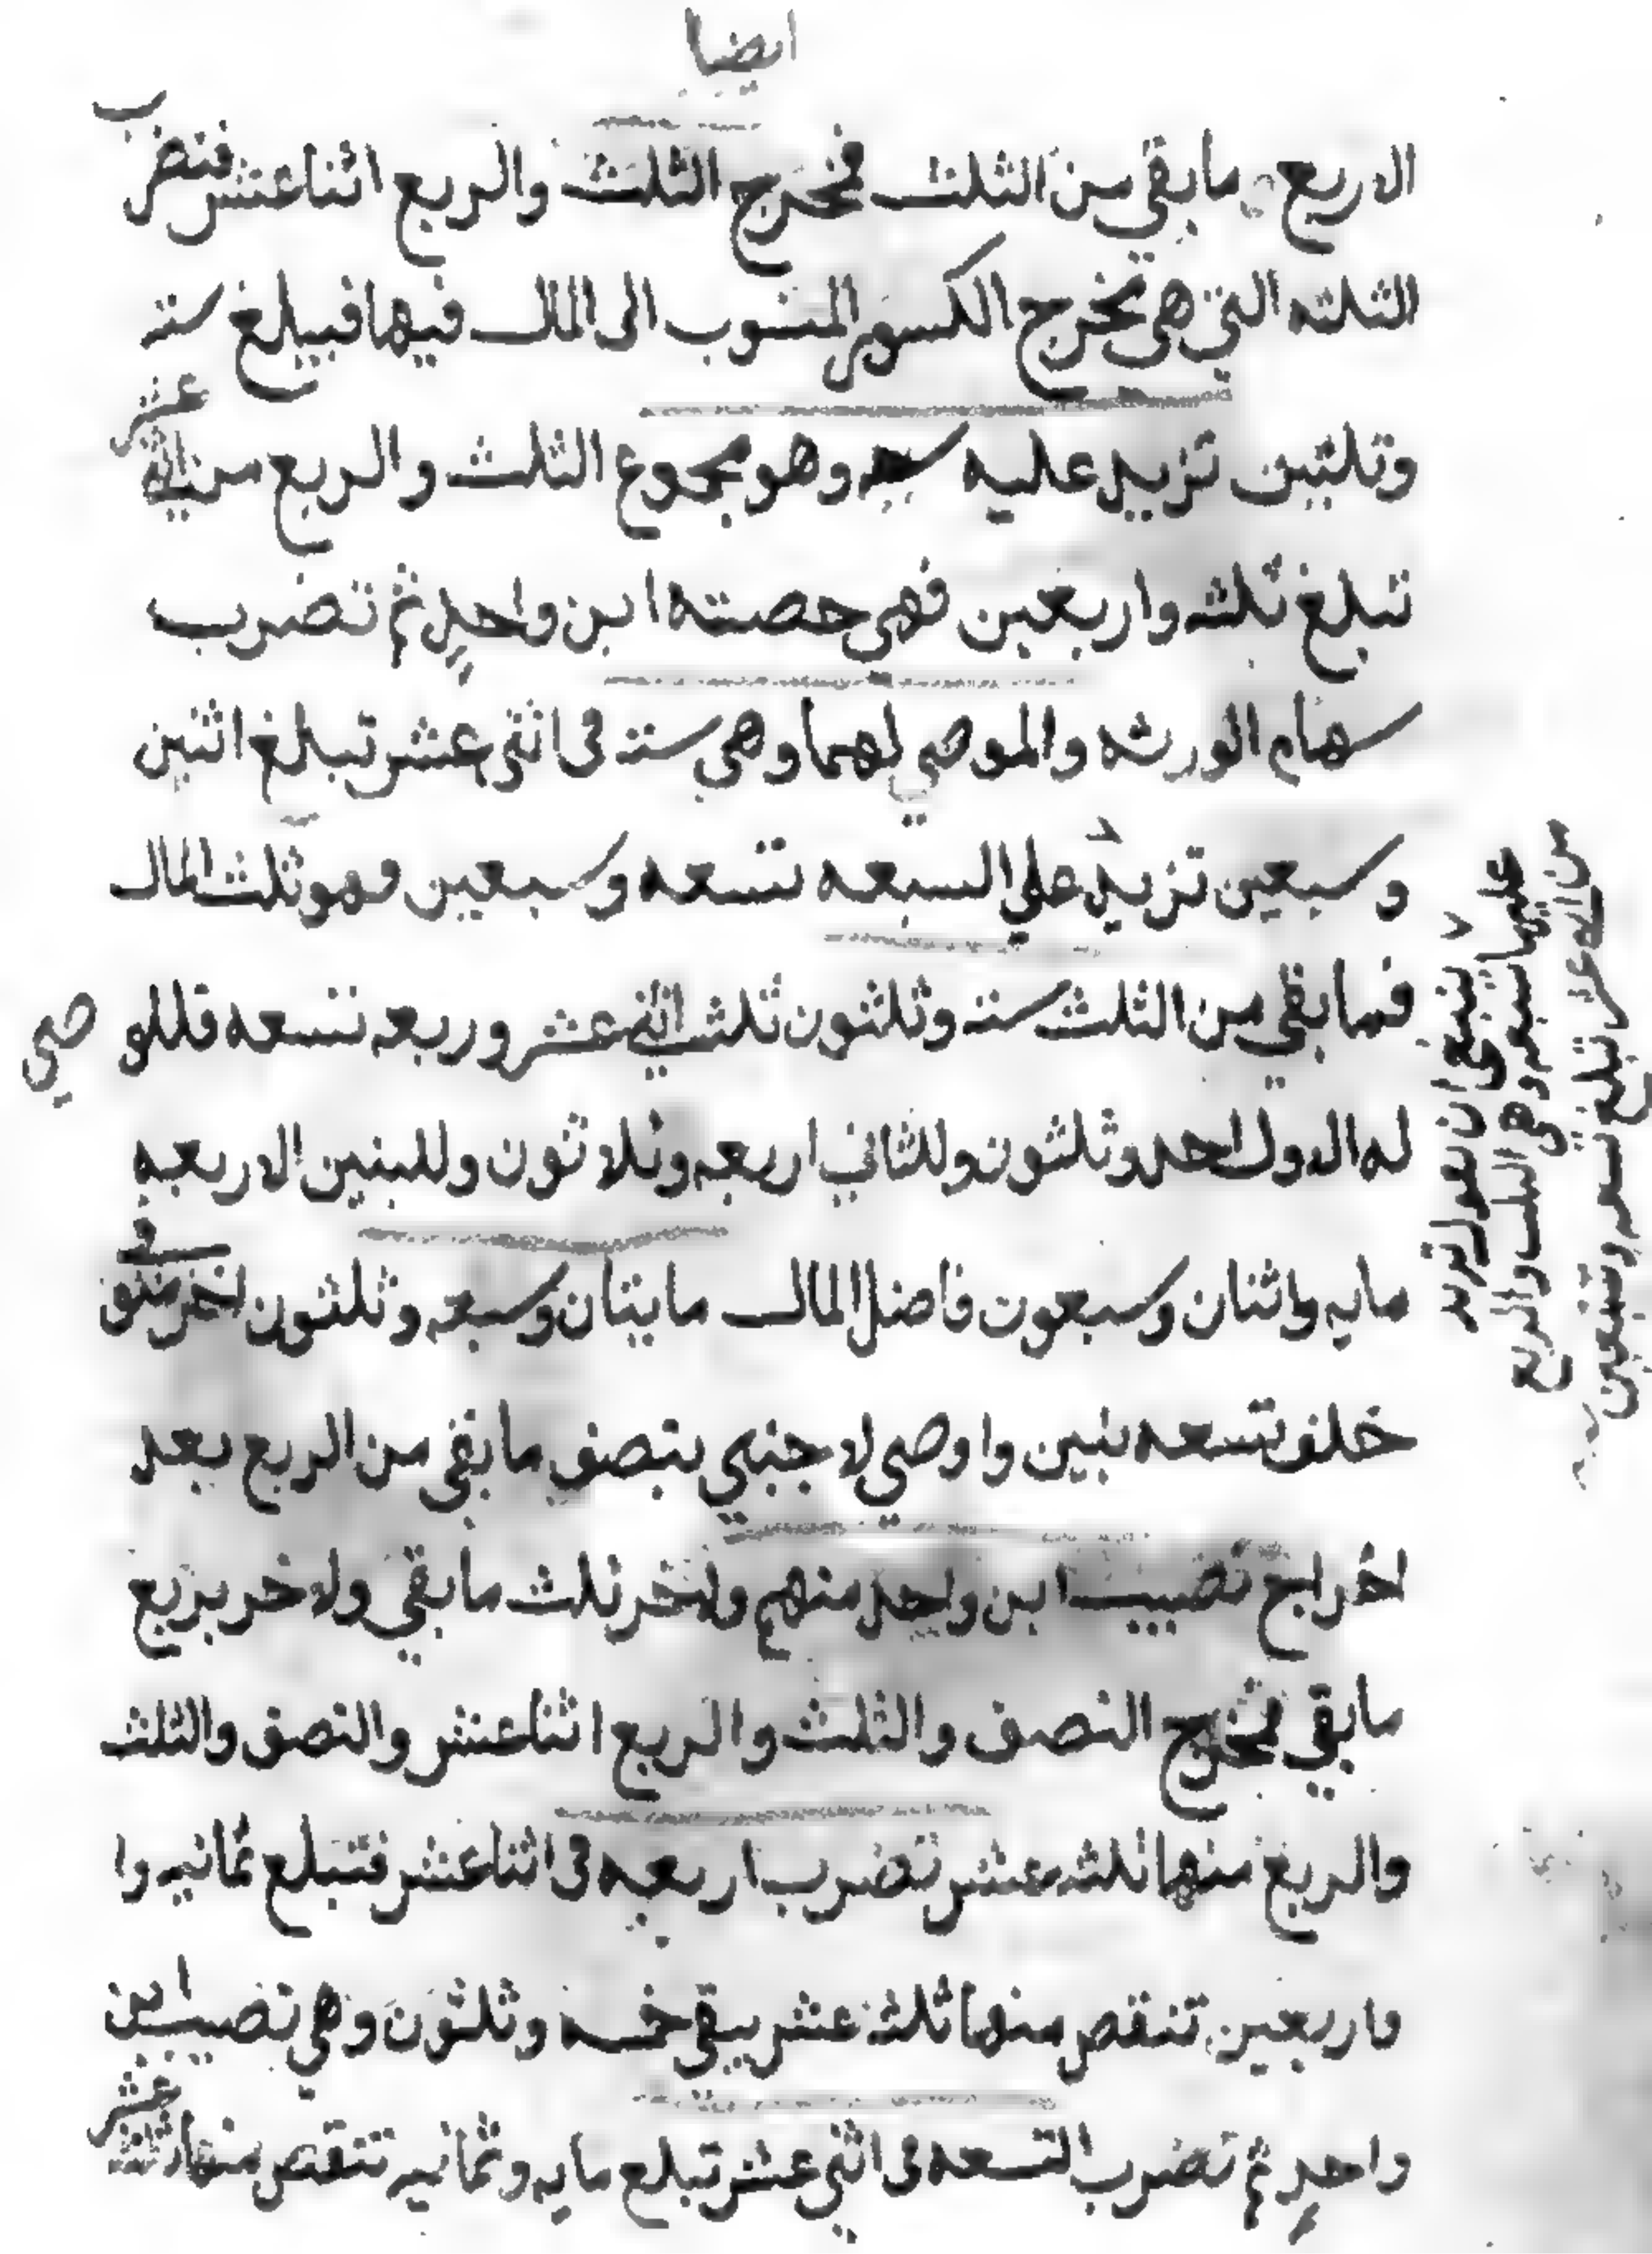 ايضا
الاربع ما بقي من الثلث فمخرج الثلث والربع اثنا عشر فتضرب
الثلثه التي هي مخرج الكسور المنسوب الى المال فيها فيبلغ ستة
وثلثين تزيد عليه سبعه وهو مجموع الثلث والربع من اثني عشر
تبلغ ثلثه واربعين فهي حصته ابن واحد ثم تضرب
سهام الورثه والموصي لهما وهي ستة في اثنى عشر تبلغ اثنين
وسبعين تزيد علي السبعه تسعه وسبعين وهو ثلث المال
فما بقي من الثلث ستة وثلثون ثلثه اثنى عشر وربعه تسعه فللموصي
له الاول احد وثلثون وللثاني اربعه وثلاثون وللبنين الاربعه
مايه واثنان وسبعون فاضل المال مايتان وسبعه وثلثون اخر متوفي
خلف تسعه بنين واوصي لاجنبي بنصف ما بقى من الربع بعد
اخراج نصيب ابن واحد منهم ولاخر ثلث ما بقي ولاخر بربع
ما بقي فمخرج النصف والثلث والربع اثنا عشر والنصف والثلث
والربع منها ثلثه عشر تضرب اربعه في اثنا عشر فتبلغ ثمانيه وا
واربعين تنقص منها ثلثه عشر يبقى خمسه وثلثون وهي نصيب ابن
واحد ثم تضرب التسعه في اثنى عشر تبلغ مايه وثمانيه تنقص منها ثلثة عشر
ينبغى ان يقول تزيد
عليها سبعه وهى الثلث والربع
من اثنى عشر تبلغ تسعه وسبعين